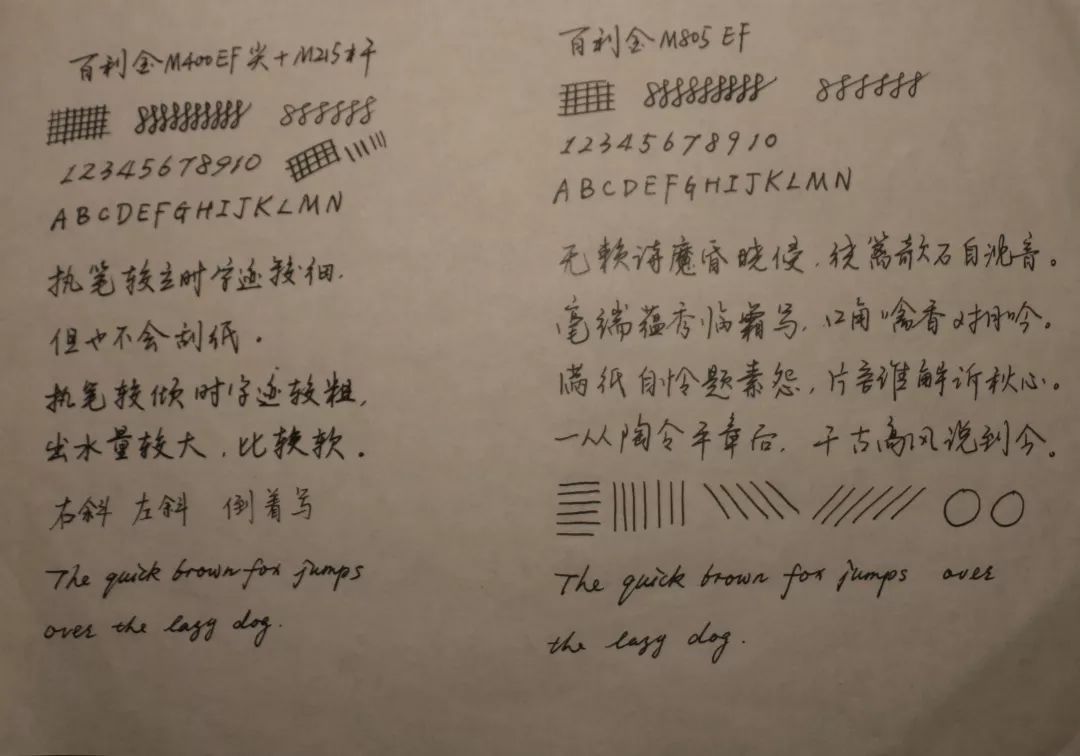 百利金M400EF尖+M215杆
8888888888 888888
12345678910
ABCDEFGHIJKLMN
执笔较立时字迹较细.
但也不会刮纸。
执笔较倾时字迹较粗,
出水量较大,比较软。
右斜 左斜 倒着写
The quick brown fox jumps
over the lazy dog.
百利金M805 EF
888888888 888888
12345678910
ABCDEFGHIJKLMN
无赖诗魔昏晓侵,绕篱欹石自沉音。
毫端蕴秀临霜写,口角噙香对月吟。
满纸自怜题素怨,片言谁解诉秋心。
一从陶令平章后,千古高风说到今。
The quick brown fox jumps over
the lazy dog.